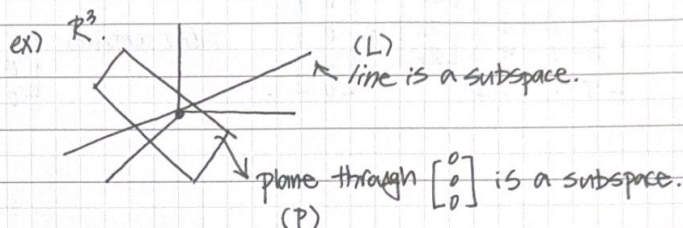 ex) R³.
(L)
line is a subspace.
plane through [0 0 0] is a subspace.
(P)